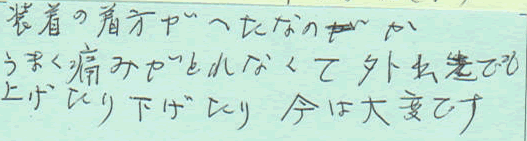 装着の着方がへたなのか
うまく痛みがとれなくて外出先でも
上げたり下げたり 今は大変です